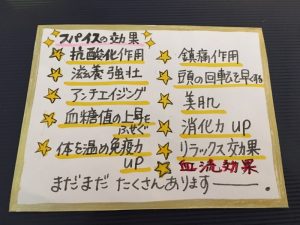 スパイスの効果
抗酸化作用
滋養強壮
アンチエイジング
血糖値の上昇を
ふせぐ
体を温め免疫力
UP
鎮痛作用
頭の回転を早くする
美肌
消化力 UP
リラックス効果
血流効果
まだまだ たくさん あります――。